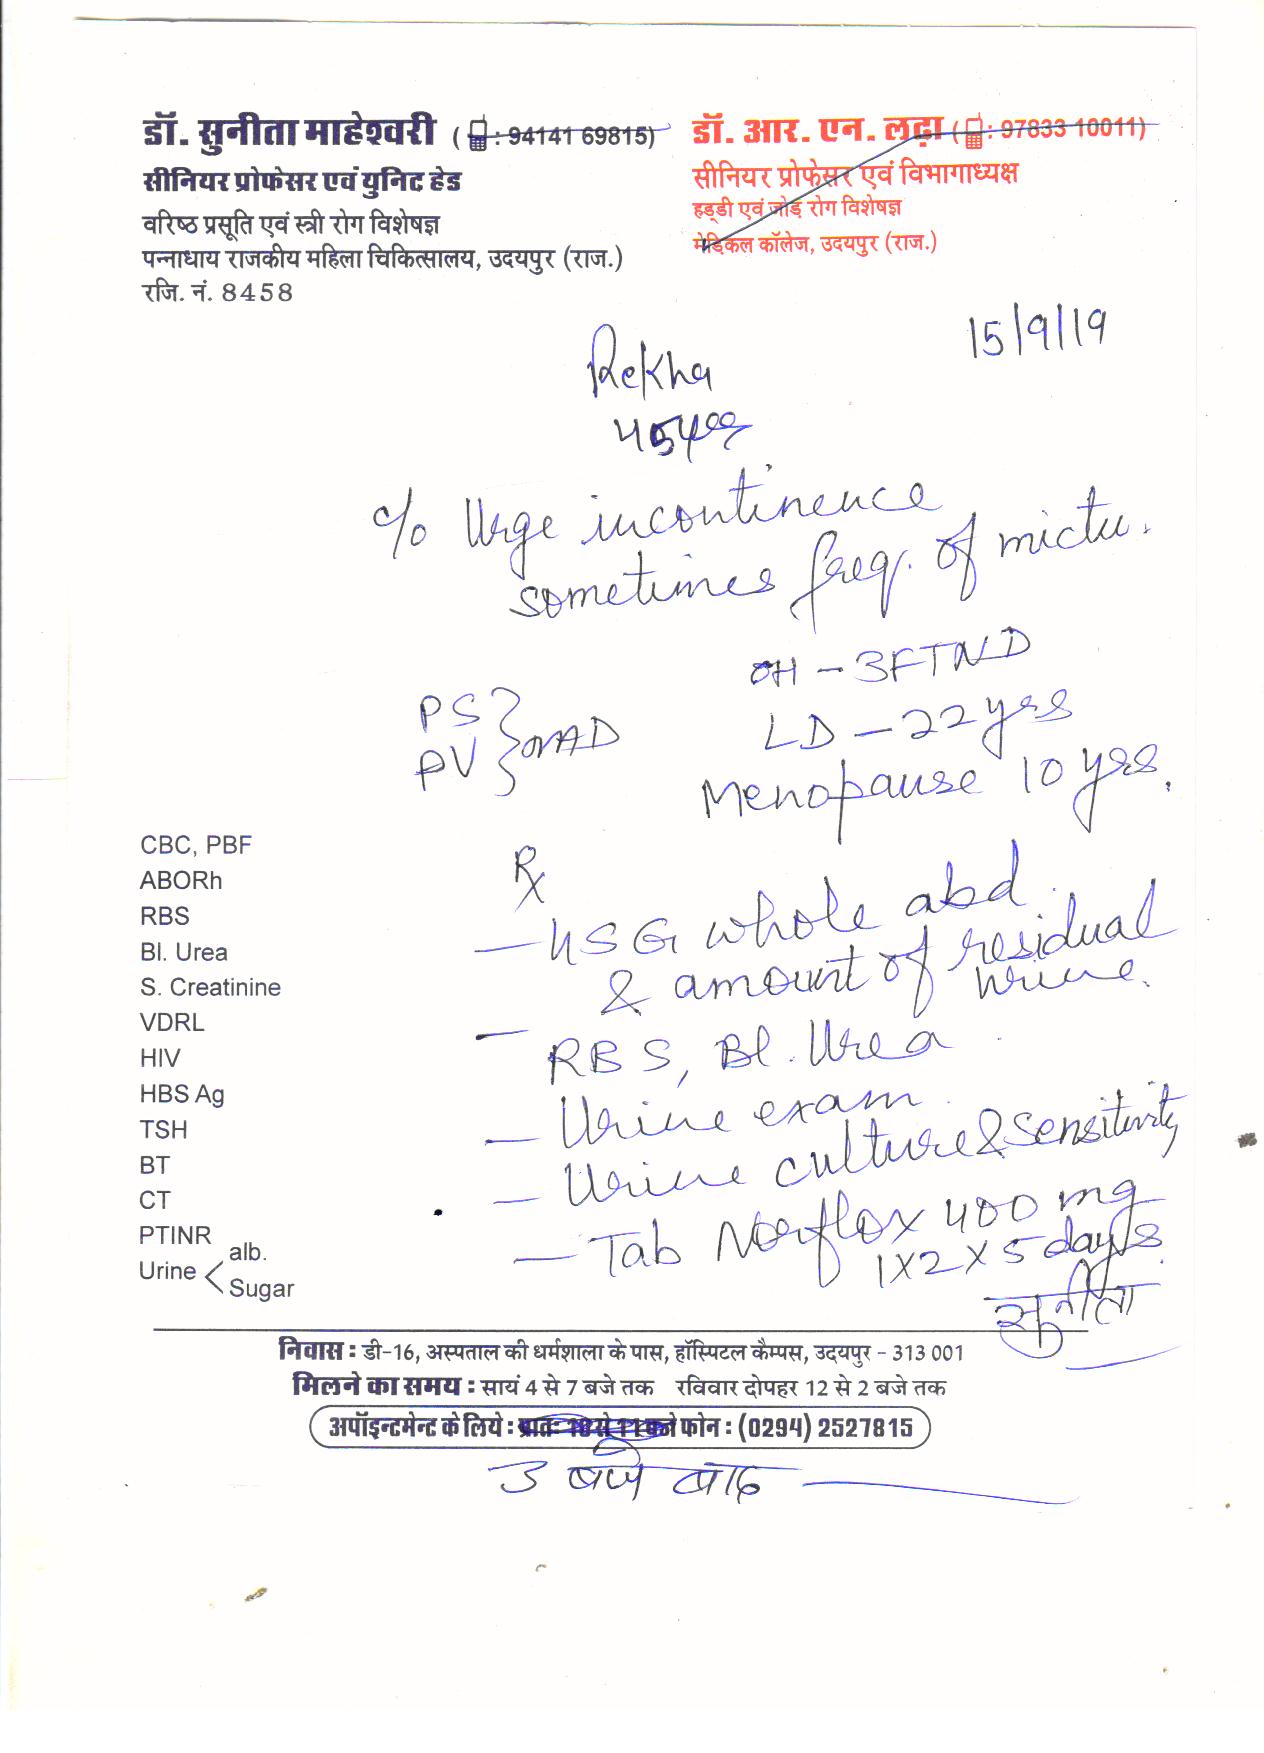 डॉ. सुनीता माहेश्वरी ( : 94141 69815)
सीनियर प्रोफेसर एवं युनिट हेड
वरिष्ठ प्रसूति एवं स्त्री रोग विशेषज्ञ
पन्नाधाय राजकीय महिला चिकित्सालय, उदयपुर (राज.)
रजि. नं. 8458
डॉ. आर. एन. लढ़ा ( : 97833 10011)
सीनियर प्रोफेसर एवं विभागाध्यक्ष
हड्डी एवं जोड़ रोग विशेषज्ञ
मेडिकल कॉलेज, उदयपुर (राज.)
15/9/19
Rekha
c/o Urge incontinence
sometimes freq. of mictu.
OH - 3FTND
PS
PV } NAD
LD - 22 yrs
Menopause 10 yrs.
CBC, PBF
ABORh
RBS
Bl. Urea
S. Creatinine
VDRL
HIV
HBS Ag
TSH
BT
CT
PTINR
Urine < alb.
Sugar
Rx
- USG whole abd
& amount of residual
urine.
- RBS, Bl. Urea
- Urine exam
- Urine culture & sensitivity
- Tab Norflox 400 mg
1 x 2 x 5 days
सुनीता
निवास : डी-16, अस्पताल की धर्मशाला के पास, हॉस्पिटल कैम्पस, उदयपुर - 313 001
मिलने का समय : सायं 4 से 7 बजे तक रविवार दोपहर 12 से 2 बजे तक
अपॉइन्टमेन्ट के लिये : प्रातः 10 से 11 बजे फोन : (0294) 2527815
3 बजे बाद